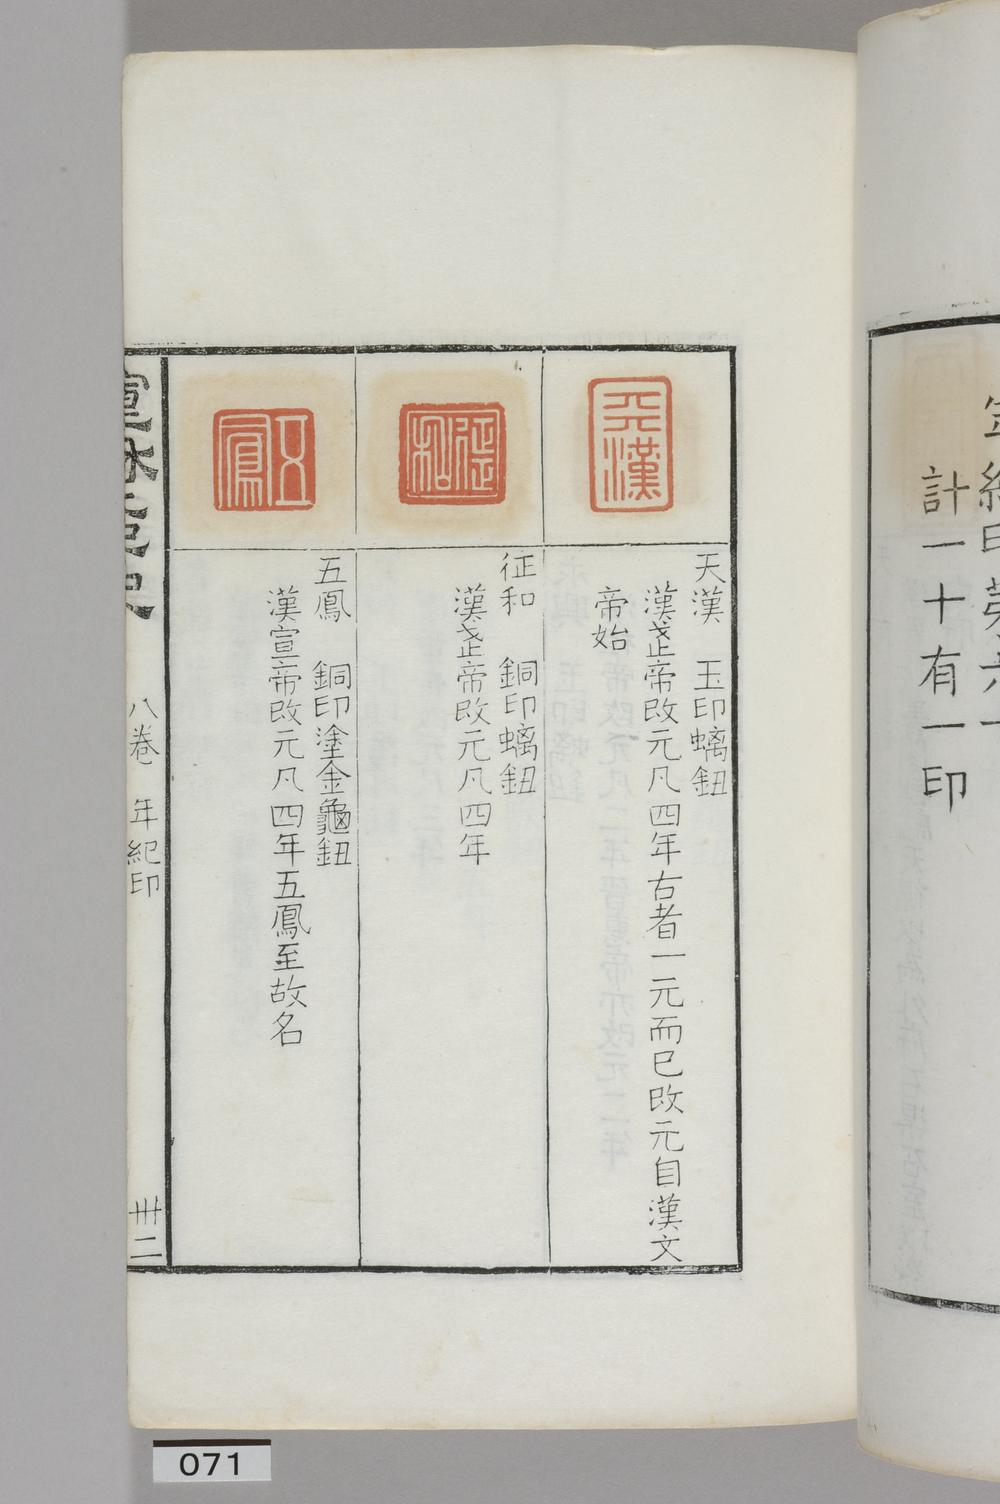 計一十有一印
天漢
天漢 玉印螭鈕
漢武帝改元凡四年古者一元而已改元自漢文
帝始
征和
征和 銅印螭鈕
漢武帝改元凡四年
五鳳
五鳳 銅印塗金龜鈕
漢宣帝改元凡四年五鳳至故名
八卷 年紀印
卌二
071